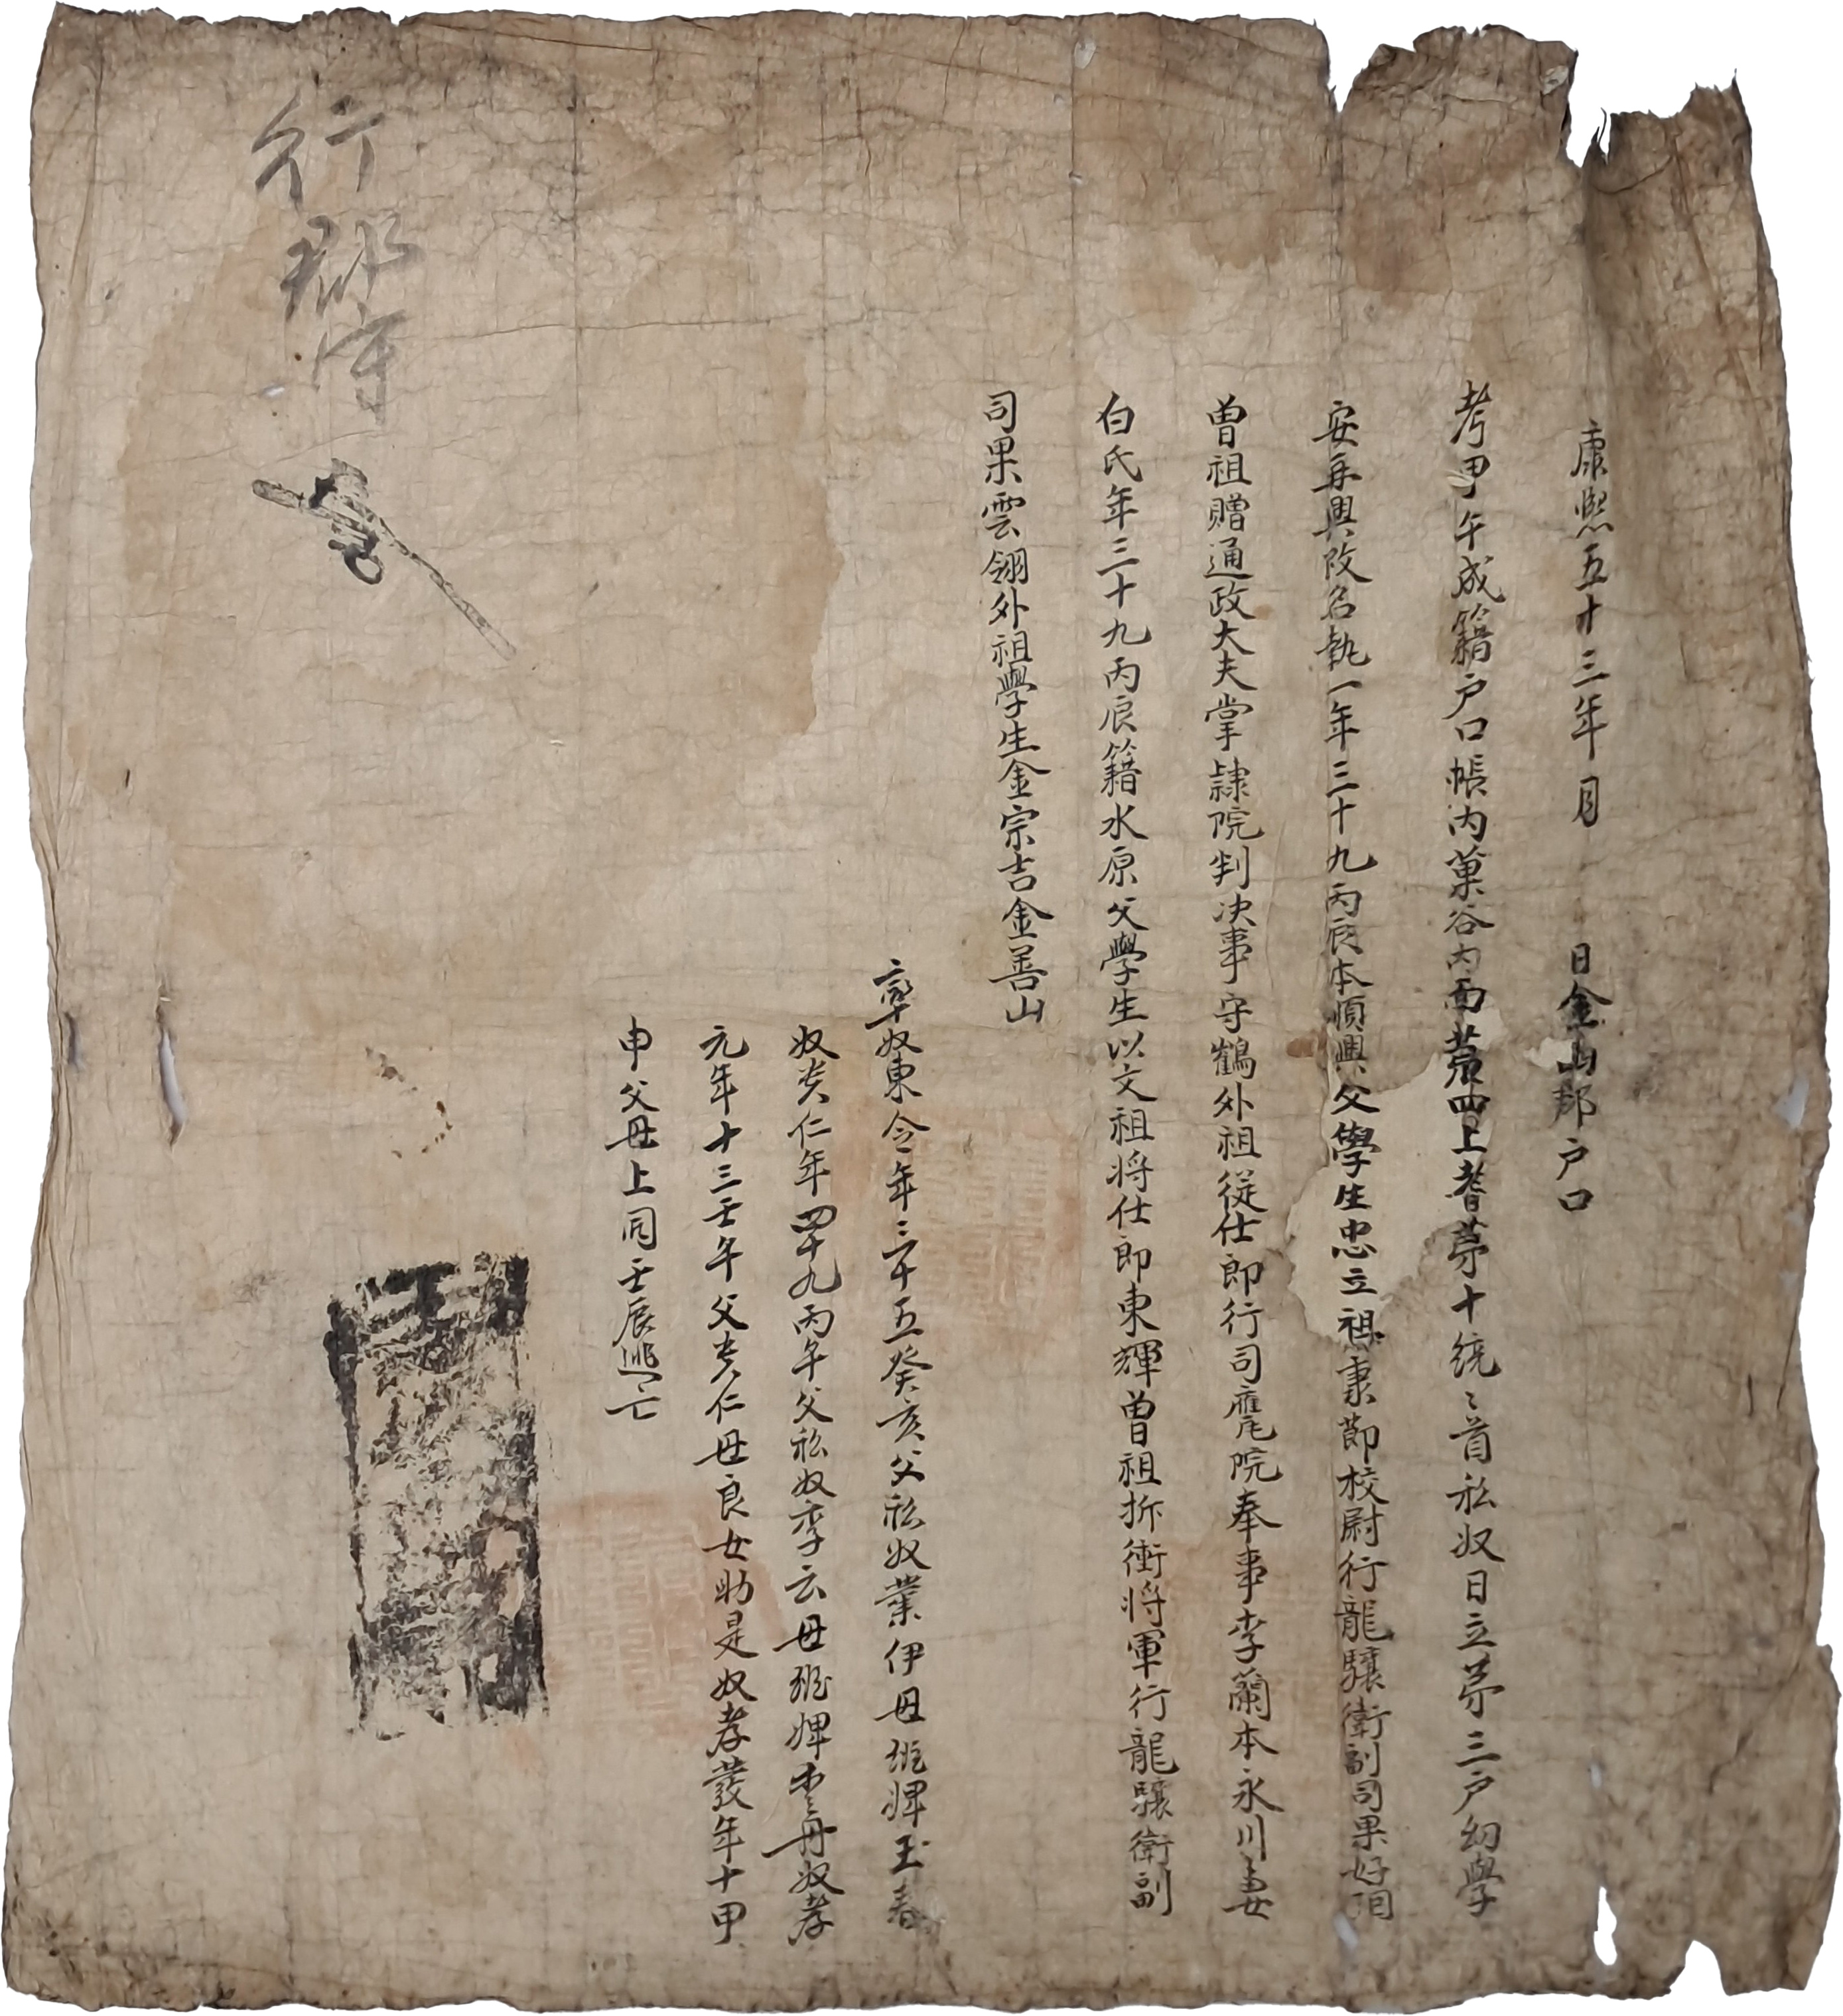 康熙五十三年 月 日金山郡户口
考甲午成籍户口帳內菓谷內面蒼四上耆苐十統〻首私奴日立苐三户幼學
安再興改名執一年三十九丙辰本順興父學生忠立祖秉節校尉行龍驤衛副司果好
曽祖贈通政大夫掌隷院判决事守鶴外祖從仕郎行司䆃院奉事李蘭本永川妻
白氏年三十九丙辰籍水原父學生以文祖將仕郎東輝曽祖折衝將軍行龍驤衛副
司果雲翎外祖學生金宗吉金善山
率奴東令年三十五癸亥父私奴業伊母班婢玉春
奴贵仁年四十九丙午父私奴季云母班婢奴孝
元年十三壬午父贵仁母良女助是奴孝發年十甲
申父母上同壬辰逃亡
行郡守